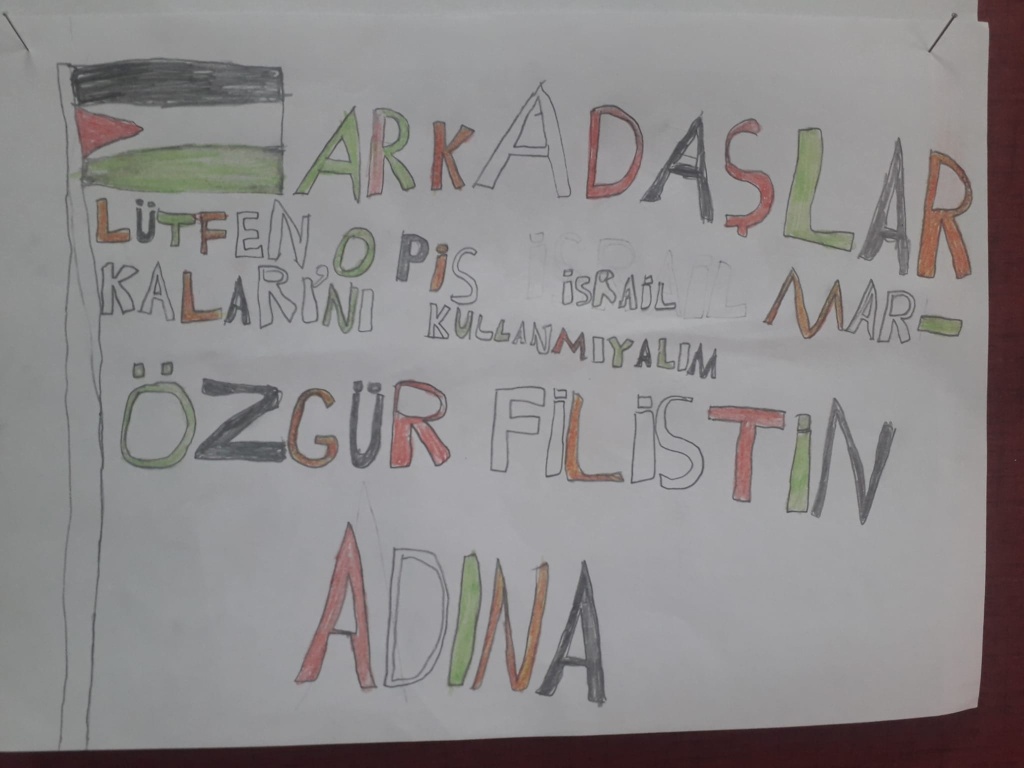 ARKADAŞLAR
LÜTFEN O PİS İSRAİL MAR-
KALARI'NI KULLANMIYALIM
ÖZGÜR FİLİSTİN
ADINA